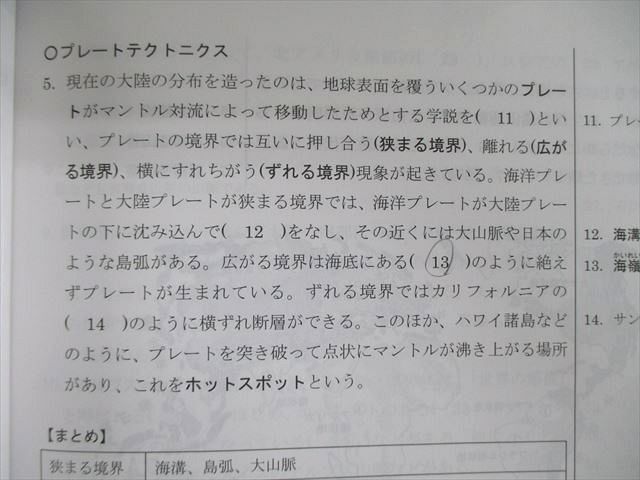 〇プレートテクトニクス
5. 現在の大陸の分布を造ったのは、地球表面を覆ういくつかのプレー
トがマントル対流によって移動したためとする学説を( 11 )とい
い、プレートの境界では互いに押し合う(狭まる境界)、離れる(広が
る境界)、横にすれちがう(ずれる境界)現象が起きている。海洋プレ
ートと大陸プレートが狭まる境界では、海洋プレートが大陸プレー
トの下に沈み込んで( 12 )をなし、その近くには大山脈や日本の
ような島弧がある。広がる境界は海底にある( 13 )のように絶え
ずプレートが生まれている。ずれる境界ではカリフォルニアの
( 14 )のように横ずれ断層ができる。このほか、ハワイ諸島など
のように、プレートを突き破って点状にマントルが沸き上がる場所
があり、これをホットスポットという。
【まとめ】
狭まる境界 海溝、島弧、大山脈
11. プレー
12. 海溝
かいれい
13. 海嶺
14. サン